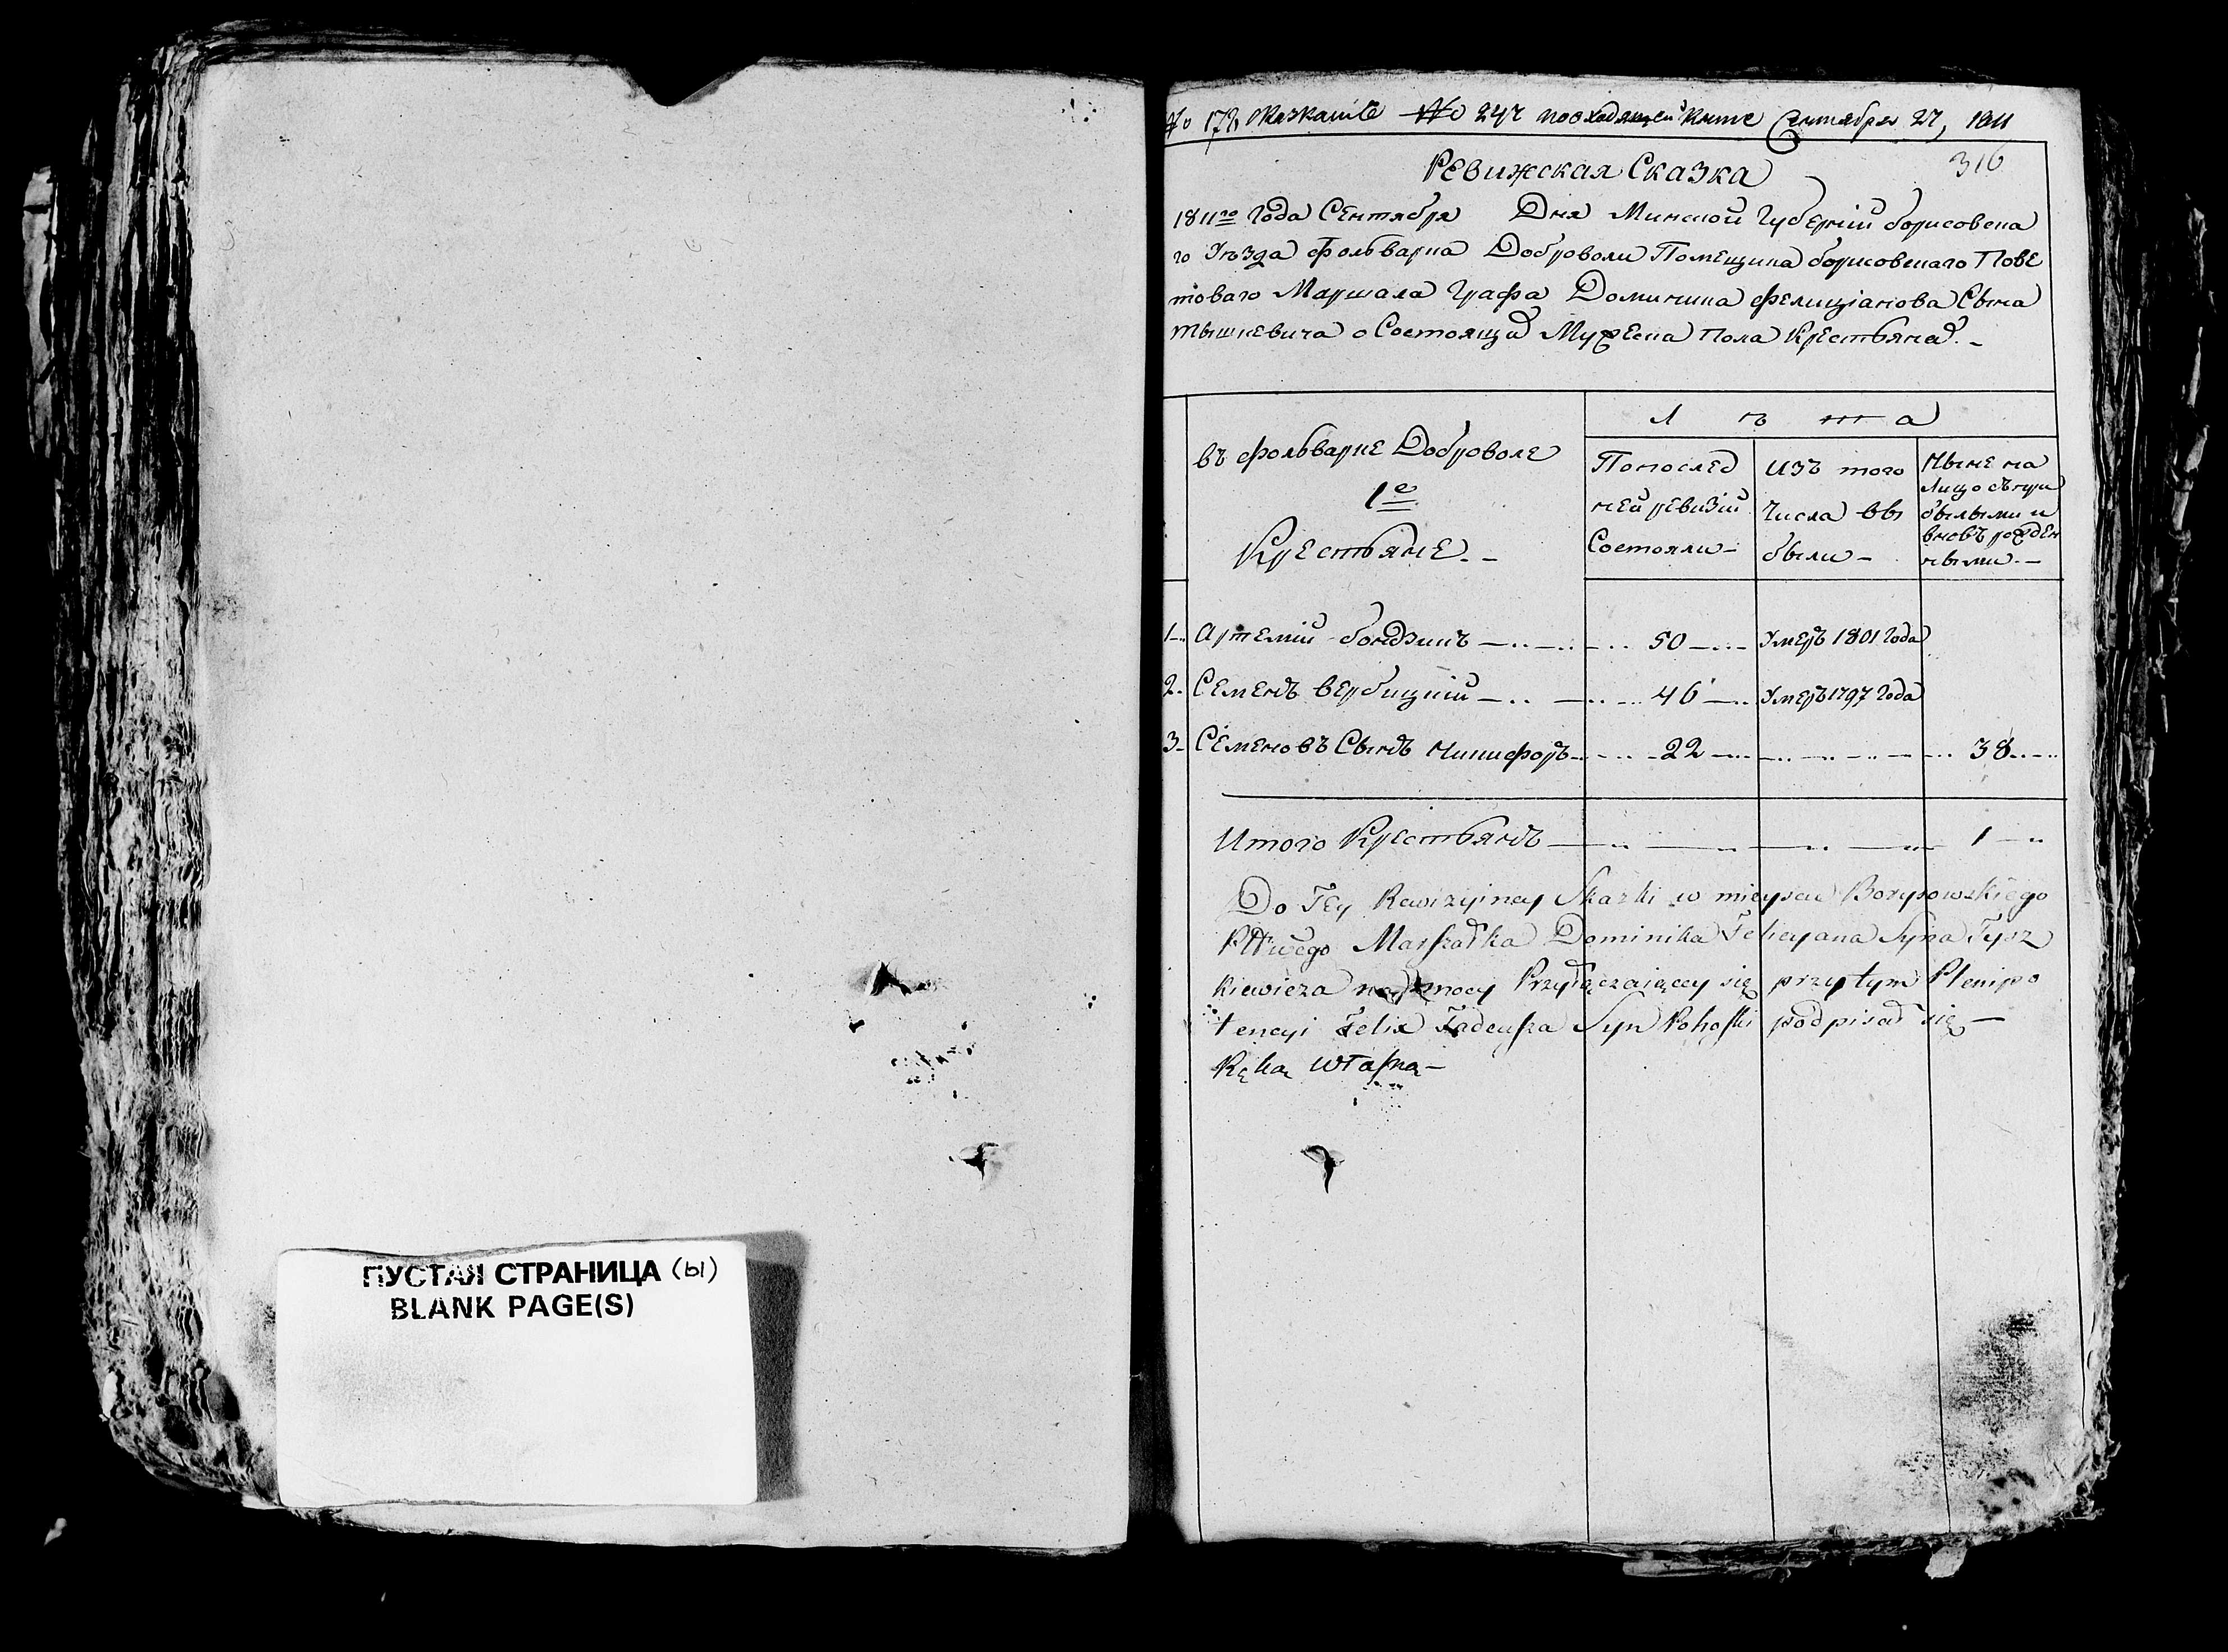 ПУСТАЯ СТРАНИЦА (ы)
BLANK PAGE(S)
No 172 No 247 повходящей Книге Сентября 27, 1811
316
Ревижская Сказка
1811го Года Сентября Дня Минской Губернии борисовска
го Уѣзда фольварка Доброволи Помещика борисовскаго Пове
товаго Маршала Графа Доминика фелицiанова Сына
тышкевича о Состоящих Мужеска пола Крестьянах. -
въ фольварке Доброволе
1е
Крестьяне. -
Л ѣ т а
Попослед
ней ревизiи
Состояли -
изъ того
Числа вы
были -
Ныне на
Лицо съ при
былыми и
вновь рожден
ными. -
1 - Артемiй бондзикъ 50 Умеръ 1801 Года
2 - Семенъ вербицкiй 46 Умеръ 1797 Года
3 - Семеновъ Сынъ Никифоръ 22 38
Итого Крестьянъ 1
Do Tey Rewizyiney Skazki w mieyscu Borysowskiego
Pttwego Marszałka Dominika Felicyana Syna Tysz
kiewicza mocy Przyłączaiącey się przytym Plenipo
tencyi Felix Tadeusza Syn podpisał się -
Ręką własną -